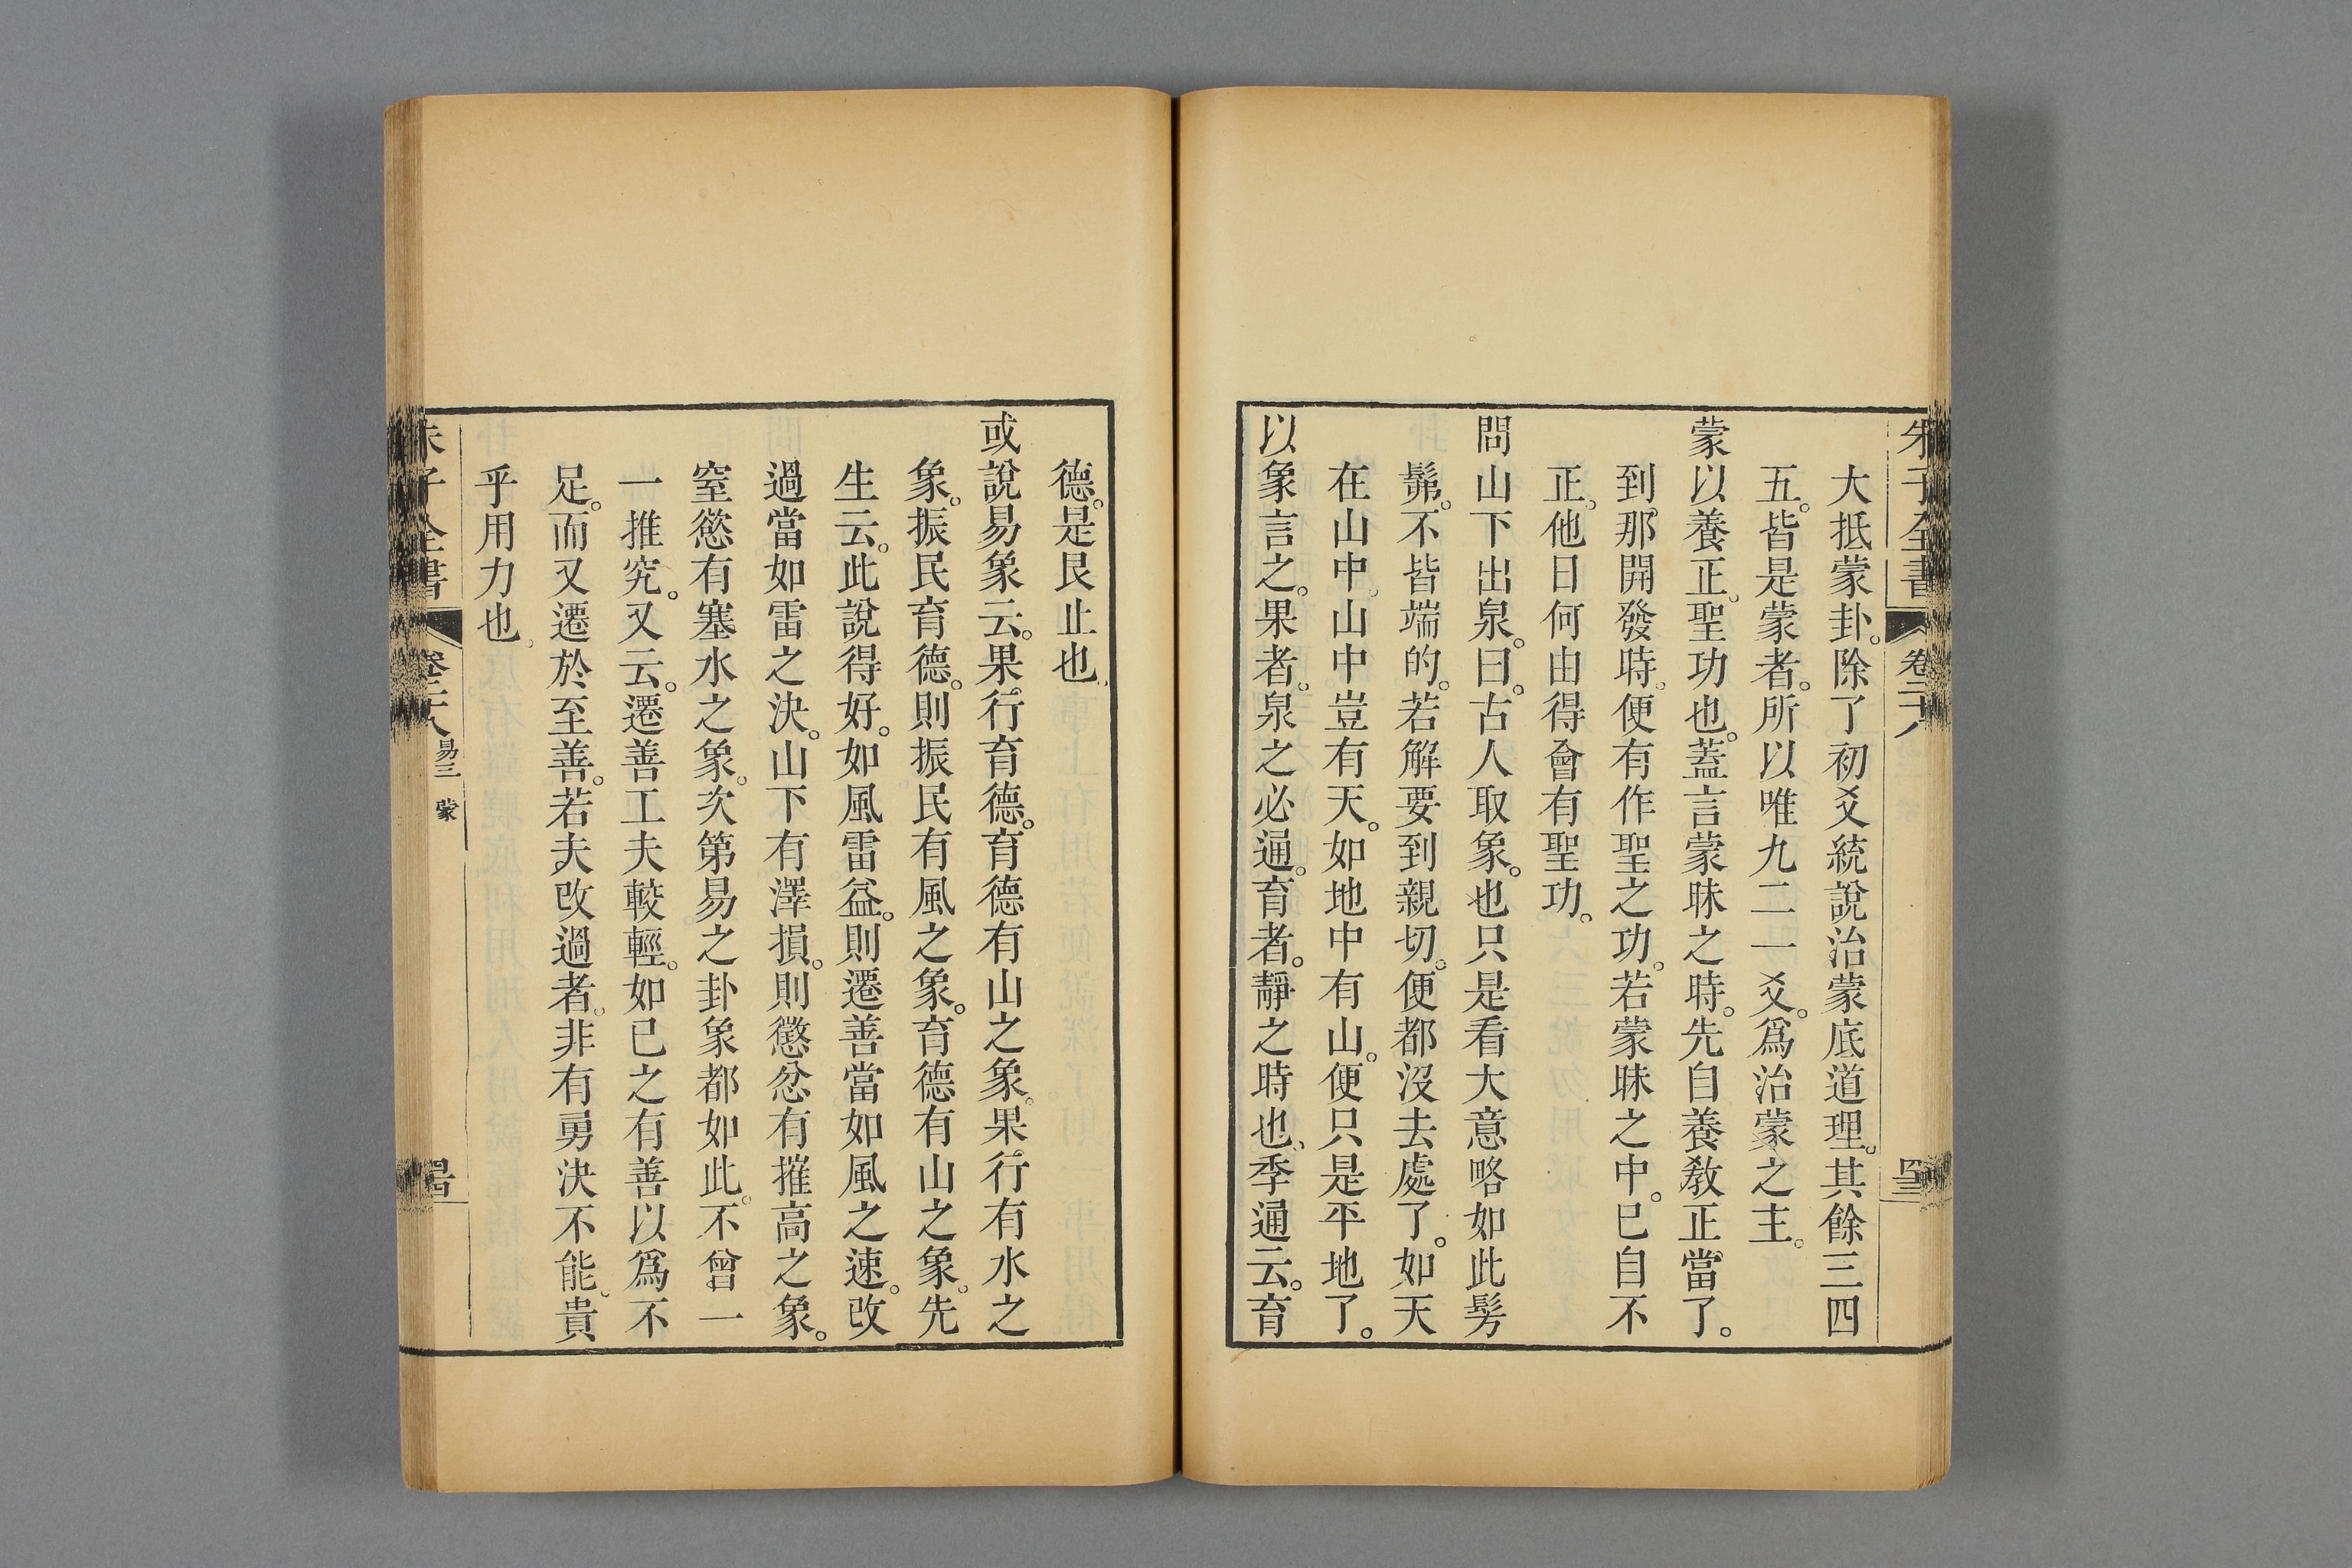 朱子全書 卷二十八
大抵蒙卦。除了初爻統說治蒙底道理。其餘三四
五。皆是蒙者。所以唯九二一爻。爲治蒙之主。
蒙以養正。聖功也。蓋言蒙昧之時。先自養敎正當了。
到那開發時。便有作聖之功。若蒙昧之中。已自不
正。他日何由得會有聖功。
問山下出泉。曰。古人取象。也只是看大意略如此髣
髴。不皆端的。若解要到親切。便都沒去處了。如天
在山中。山中豈有天。如地中有山。便只是平地了。
以象言之。果者。泉之必通。育者。靜之時也。季通云。育
德。是艮止也。
或說易象云。果行育德。育德有山之象。果行有水之
象。振民育德。則振民有風之象。育德有山之象。先
生云。此說得好。如風雷益。則遷善當如風之速。改
過當如雷之決。山下有澤損。則懲忿有摧高之象。
窒慾有塞水之象。次第易之卦象都如此。不曾一
一推究。又云。遷善工夫較輕。如已之有善以爲不
足。而又遷於至善。若夫改過者。非有勇決不能。貴
乎用力也。
朱子全書 卷二十八 易三 蒙